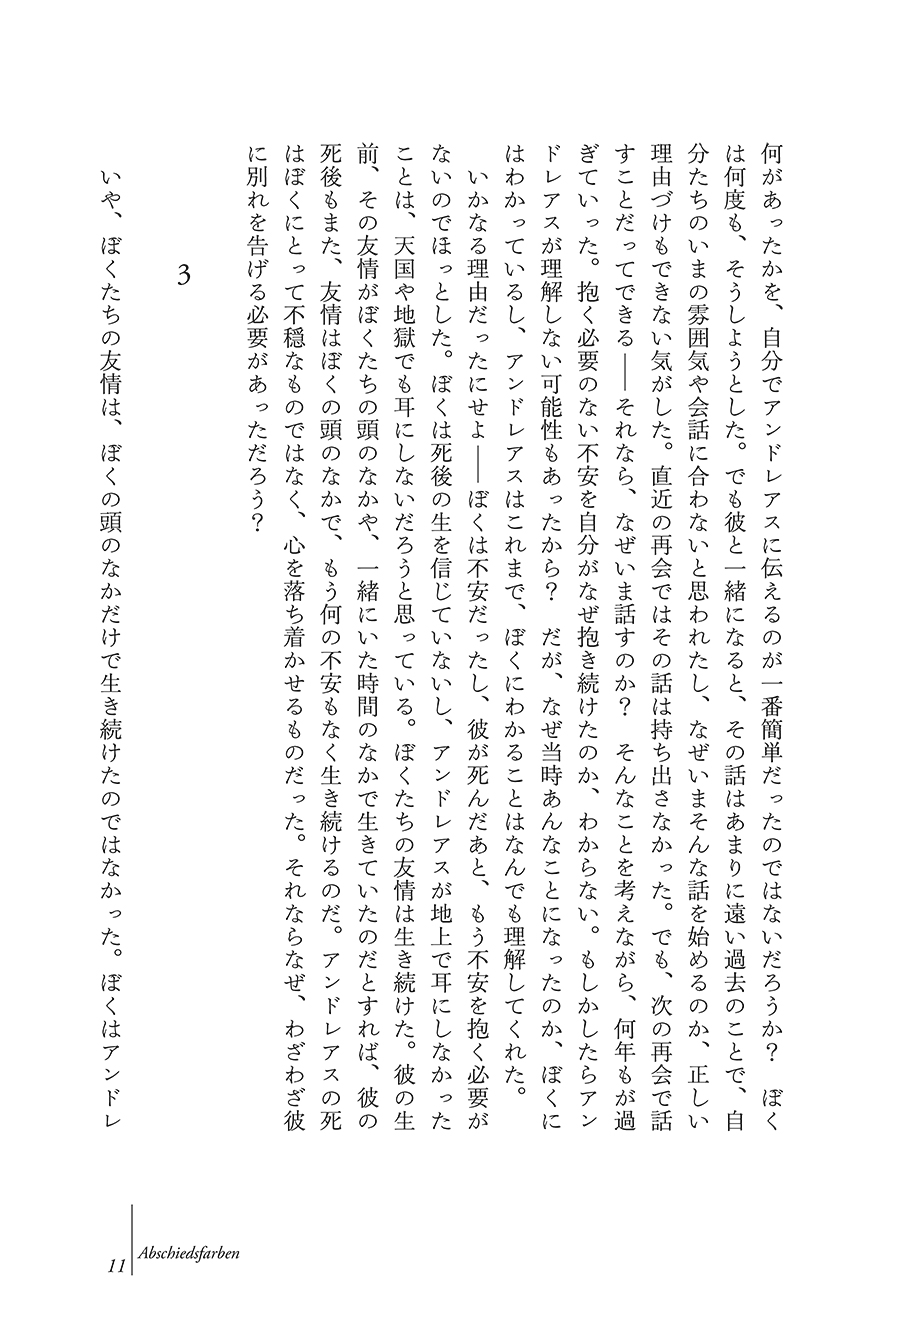 何があったかを、自分でアンドレアスに伝えるのが一番簡単だったのではないだろうか？　ぼく
は何度も、そうしようとした。でも彼と一緒になると、その話はあまりに遠い過去のことで、自
分たちのいまの雰囲気や会話に合わないと思われたし、なぜいまそんな話を始めるのか、正しい
理由づけもできない気がした。直近の再会ではその話は持ち出さなかった。でも、次の再会で話
すことだってできる――それなら、なぜいま話すのか？　そんなことを考えながら、何年もが過
ぎていった。抱く必要のない不安を自分がなぜ抱き続けたのか、わからない。もしかしたらアン
ドレアスが理解しない可能性もあったから？　だが、なぜ当時あんなことになったのか、ぼくに
はわかっているし、アンドレアスはこれまで、ぼくにわかることはなんでも理解してくれた。
　いかなる理由だったにせよ――ぼくは不安だったし、彼が死んだあと、もう不安を抱く必要が
ないのでほっとした。ぼくは死後の生を信じていないし、アンドレアスが地上で耳にしなかった
ことは、天国や地獄でも耳にしないだろうと思っている。ぼくたちの友情は生き続けた。彼の生
前、その友情がぼくたちの頭のなかや、一緒にいた時間のなかで生きていたのだとすれば、彼の
死後もまた、友情はぼくの頭のなかで、もう何の不安もなく生き続けるのだ。アンドレアスの死
はぼくにとって不穏なものではなく、心を落ち着かせるものだった。それならなぜ、わざわざ彼
に別れを告げる必要があっただろう？
3
　いや、ぼくたちの友情は、ぼくの頭のなかだけで生き続けたのではなかった。ぼくはアンドレ
11
Abschiedsfarben